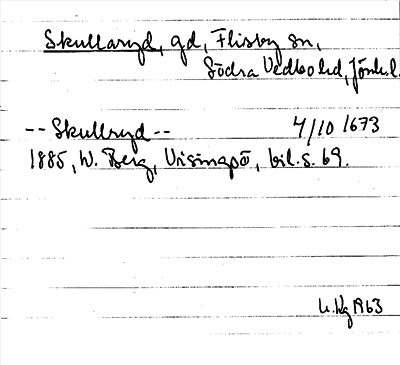 Skullaryd, gd, Flisby sn,
Södra Vedbo hd, Jönk.l.
-- Skullryd -- 4/10 1673
1885, W. Berg, Visingsö, bil.s. 69.
1963